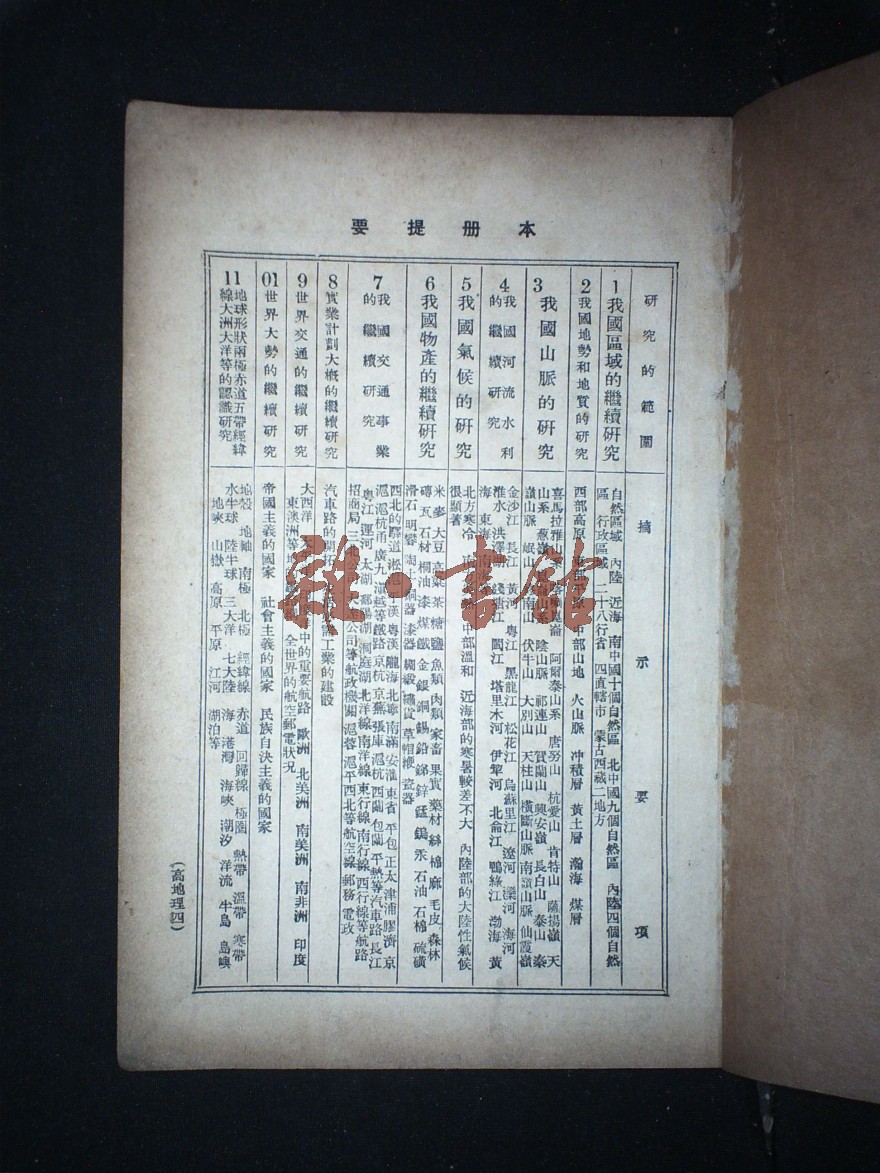 本册提要
研究的範圍
摘示要項
1 我國區域的繼續研究
自然區域 內陸 近海 南中國十個自然區 北中國九個自然區 內陸四個自然
區 行政區域 二十八行省 四直轄市 蒙古西藏二地方
2 我國地勢和地質的研究
西部高原 東部平原 中部山地 火山脈 冲積層 黃土層 瀚海 煤層
3 我國山脈的研究
喜馬拉雅山系 阿爾泰山系 唐努山 杭愛山 肯特山 薩揚嶺 天
山系 葱嶺 陰山脈 祁連山 賀蘭山 興安嶺 長白山 泰山 秦
嶺山脈 岷山 南山 伏牛山 大別山 天柱山 橫斷山脈 南嶺山脈 仙霞嶺
4 我國河流水利的繼續研究
金沙江 長江 黃河 粵江 黑龍江 松花江 烏蘇里江 遼河 灤河 海河
淮水 洪澤湖 錢塘江 閩江 塔里木河 伊犂河 北侖江 鴨綠江 渤海 黃
海 東海 南海
5 我國氣候的研究
北方寒冷 中部溫和 近海部的寒暑較差不大 內陸部的大陸性氣候
很顯著
6 我國物產的繼續研究
米 麥 大豆 高粱 茶 糖 鹽 魚類 肉類 家畜 果實 藥材 絲 棉 麻 毛皮 森林
磚瓦 石材 桐油 漆 煤 鐵 金 銀 銅 錫 鉛 銻 鋅 錳 鎢 汞 石油 石棉 硫磺
滑石 明礬 陶 銅器 漆器 草帽 瓷器
7 我國交通事業的繼續研究
西北的驛道 淞滬 平漢 粵漢 隴海 北寧 南滿 安 東省 平包 正太 津浦 膠濟 京
滬 滬杭甬 廣九 滇越等鐵路 京杭 京蕪 張庫 滬杭 西蘭 包蘭 平熱等汽車路 長江
粵江 運河 太湖 鄱陽湖 洞庭湖 北洋線 南洋線 東行線 南行線 西行線等航路
招商局 三北 公司等航政機關 滬蓉 滬平 西北等航空線 郵務 電政
8 實業計劃大概的繼續研究
汽車路的開拓 工業的建設
9 世界交通的繼續研究
大西洋 中的重要航路 歐洲 北美洲 南美洲 南非洲 印度
東 澳洲等 全世界的航空郵電狀况
01 世界大勢的繼續研究
帝國主義的國家 社會主義的國家 民族自決主義的國家
11 地球形狀兩極赤道五帶經緯線大洲大洋等的認識研究
地殼 地軸 南極 北極 經緯線 赤道 回歸線 極圈 熱帶 溫帶 寒帶
水半球 陸半球 三大洋 七大陸 海 港灣 海峽 潮汐 洋流 半島 島嶼
地峽 山嶽 高原 平原 江河 湖泊等
(高地理四)
雜·書館